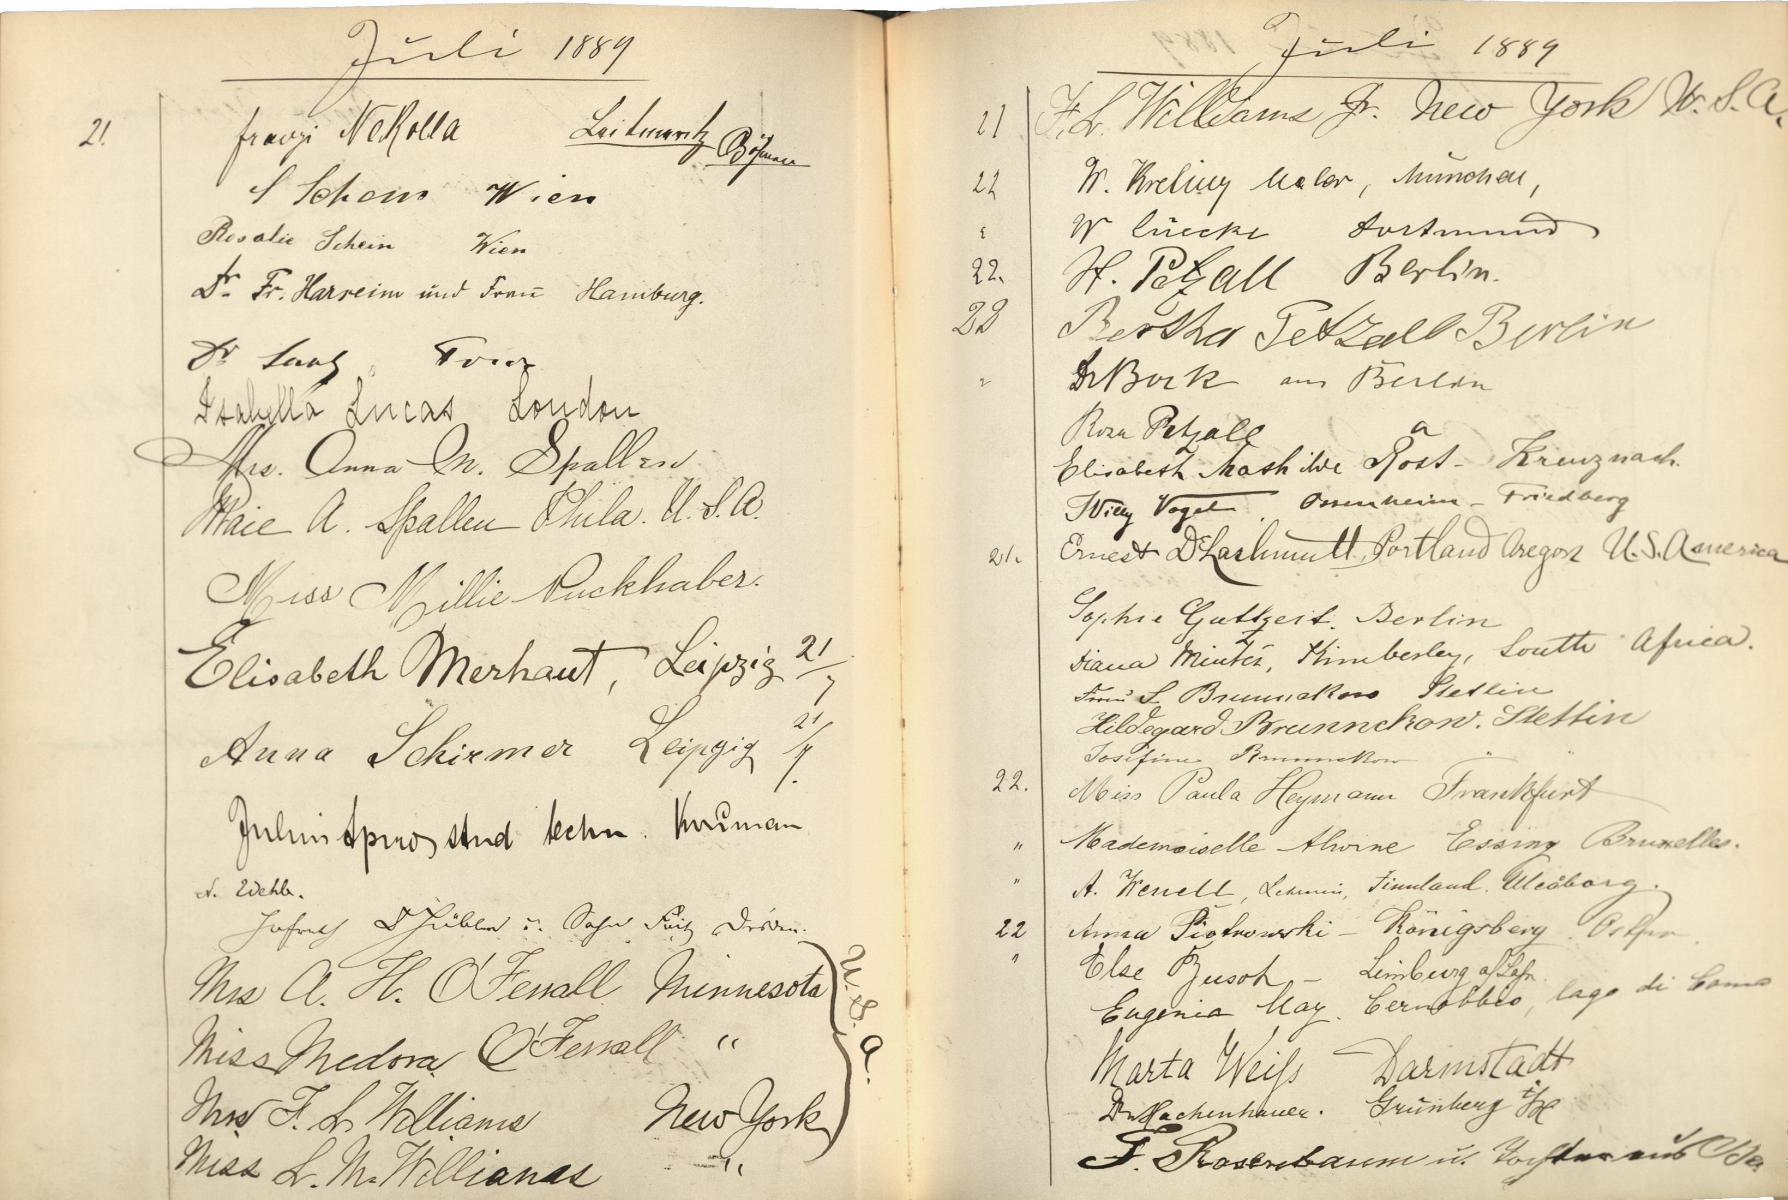 Juli 1889
21.
Leitmeritz Böhmen
S Schein Wien
Rosalie Schein Wien
Dr. Fr. Harreim und Frau Hamburg.
Dr
Isabella Lucas London
Mrs. Anna M. Spallen
Maie A. Spallen Phila. U.S.A.
Miss Millie Puckhaber.
Elisabeth Merhaut, Leipzig 21/7
Anna Schirmer Leipzig 21/7.
Julius Spiro stud techn.
N. Wehle.
u. Sohn Fritz Dresden.
Mrs A. H. O'Ferrall Minnesota
Miss Medora O'Ferrall "
Mrs F. L. Williams New York
Miss L. M. Williams "
U.S.A.
Juli 1889
21 F. L. Williams Jr. New York U.S.A.
22 W. Kreling Maler, München,
W Lücke Dortmund
22. H. Petzall Berlin.
22 Bertha Petzall Berlin
Dr Bork aus Berlin
Rosa Petzall
Elisabeth Mathilde Rost - Kreuznach.
Vogel. Ossenheim - Friedberg
21. Ernest DeLashmutt, Portland Oregon U.S. America
Sophie Guttzeit. Berlin
Diana Mintz, Kimberley, South Africa.
Frau S. Brunnckow Stettin
Hildegard Brunnckow. Stettin
Josefine Brunnckow " "
22. Miss Paula Heymann Frankfurt
" Mademoiselle Alwine Essing Bruxelles.
" A. Wenell, Finnland. Uleåborg.
22 Anna Piotrowski - Königsberg Ostpr.
" Else Busch - Limburg a/Lahn.
Eugenia May. Cernobbio, lago di Como
Marta Weiss Darmstadt
Dr Hachenhauer. Grünberg i/H
F. Rosenbaum u. Tochter aus